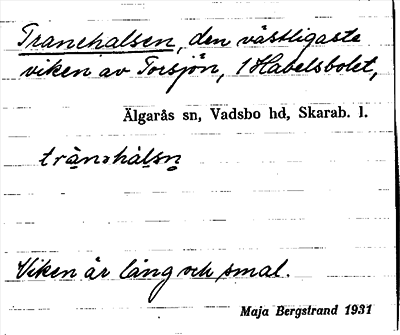 Tranehalsen, den västligaste
viken av Torsjön, 1 Habelsbolet,
Älgarås sn, Vadsbo hd, Skarab. l.
Viken är lång och smal.
Maja Bergstrand 1931